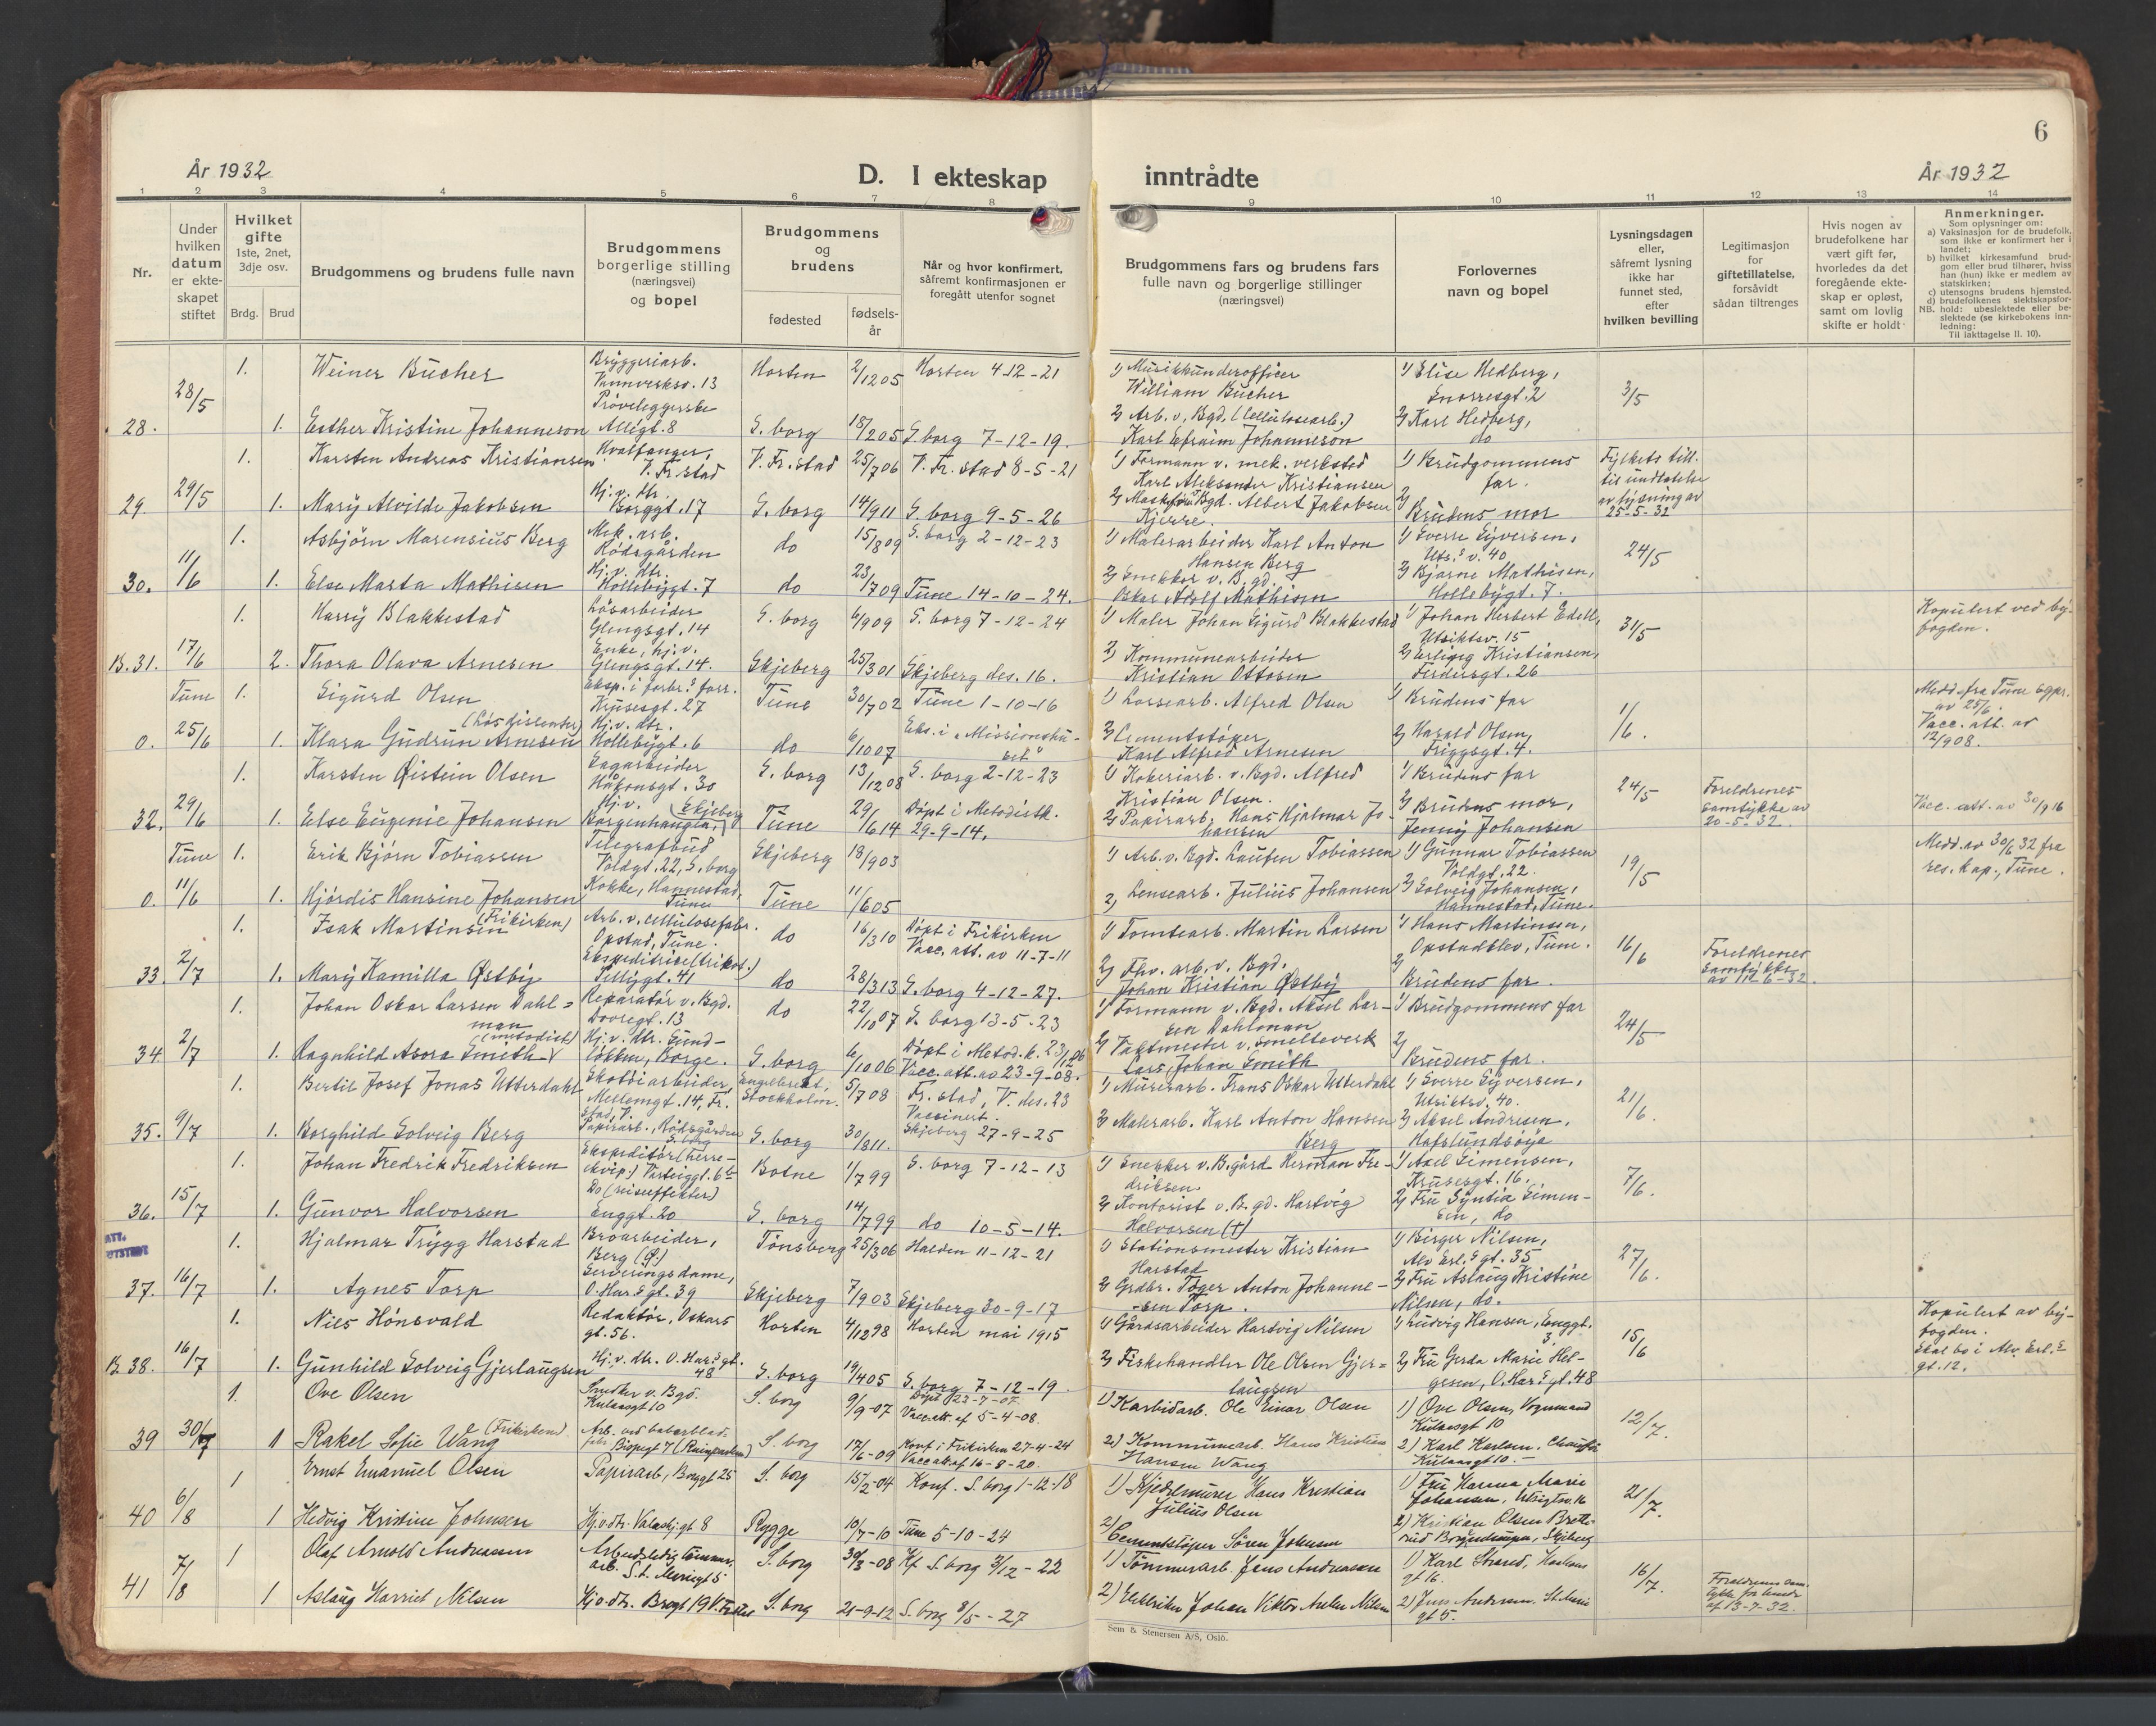 6
År 1932
D. I ekteskap
inntrådte
År 1932
1 2 3 4 5 6 7 8 9 10 11 12 13 14
Nr.
Under
hvilken
datum
er ekte-
skapet
stiftet
Hvilket
gifte
1ste, 2net,
3dje osv.
Brdg. Brud
Brudgommens og brudens fulle navn
Brudgommens
borgerlige stilling
(næringsvei)
og bopel
Brudgommens
og
brudens
fødested
fødsels-
år
Når og hvor konfirmert,
såfremt konfirmasjonen er
foregått utenfor sognet
Brudgommens fars og brudens fars
fulle navn og borgerlige stillinger
(næringsvei)
Forlovernes
navn og bopel
Lysningsdagen
eller,
såfremt lysning
ikke har
funnet sted,
efter
hvilken bevilling
Legitimasjon
for
giftetillatelse,
forsåvidt
sådan tiltrenges
Hvis nogen av
brudefolkene har
vært gift før,
hvorledes da det
foregående ekte-
skap er opløst,
samt om lovlig
skifte er holdt
Anmerkninger.
Som oplysninger om:
a) Vaksinasjon for de brudefolk,
som ikke er konfirmert her i
landet;
b) hvilket kirkesamfund brud-
gom eller brud tilhører, hviss
han (hun) ikke er medlem av
statskirken;
c) utensogns brudens hjemsted.
d) brudefolkenes slektskapsfor-
NB. hold: ubeslektede eller be-
slektede (se kirkebokens inn-
ledning:
Til iakttagelse II. 10).
28. 28/5
1. Weiner Bücher
Bryggeriarb.
Vannverksv. 13
Horten 2/12 05 Horten 4-12-21
1) Musikkunderofficer
William Bücher
1) Elise Hedberg,
Snorresgt. 2
3/5
1. Esther Kristine Johanneson
Prøveleggerske
Allégt. 8
S. borg 18/2 05 S. borg 7-12-19.
2) Arb. v. Bgd. (Cellulosearb.)
Karl Efraim Johanneson
2) Karl Hedberg,
do
29. 29/5
1. Karsten Andreas Kristiansen
Hvalfanger,
V. Fr. stad
V. Fr. stad 25/7 06 V. Fr. stad 8-5-21
1) Formann v. mek. verksted
Karl Aleksander Kristiansen
1) Brudgommens
far.
Fylkets till.
til undlatelse
av lysning av
25-5-32
1. Mary Alvilde Jakobsen
Hj. v. dtr.
Borggt. 17
S. borg 14/9 11 S. borg 9-5-26
2) Maskfør. v. Bgd. Albert Jakobsen
Kjerre.
2) Brudens mor
30. 11/6
1. Asbjörn Marensius Berg
Mek. arb.
Rødsgården
do 15/8 09 S. borg 2-12-23
1) Malerarbeider Karl Anton
Hansen Berg
1) Sverre Syversen,
Uts. v. 40
24/5
1. Else Marta Mathisen
Hj. v. dtr.
Hollebygt. 7
do 23/1 09 Tune 14-10-24.
2) Snekker v. B. gd.
Oskar Adolf Mathisen
2) Bjarne Mathisen,
Hollebygt. 7.
B. 31. 17/6
1. Harry Blakkestad
Løsarbeider
Glengsgt. 14
S. borg 6/9 09 S. borg 7-12-24
1) Maler Johan Sigurd Blakkestad
1) Johan Herbert Edell,
Utsiktsv. 15
31/5
Kopulert ved by-
fogden.
2. Thora Olava Arnesen
Enke, hj. v.
Glengsgt. 14.
Skjeberg 25/3 01 Skjeberg des. 16.
2) Kommunearbeider
Kristian Ottosen
2) Erling Kristiansen,
Ferdersgt. 26
0. Tune 25/6
1. Sigurd Olsen
Eksp. i forbr.s forr.
Krusesgt. 27
Tune 30/7 02 Tune 1-10-16
1) Lossearb. Alfred Olsen
1) Brudens far
1/6.
Medd. fra Tune sgpr.
av 25/6.
Vacc. att. av
12/9 08.
1. Klara Gudrun Arnesen (Løs dissenter)
Hj. v. dtr.
Hollebygt. 6
do 6/10 07 Eks. i "Missionshu-
set"
2) Cementstøper
Karl Alfred Arnesen
2) Harald Olsen,
Friggsgt. 4.
32. 29/6
1. Karsten Øistein Olsen
Sagarbeider
Håkonsgt. 30
S. borg 13/12 08 S. borg 2-12-23
1) Kokeriarb. v. Bgd. Alfred
Kristian Olsen.
1) Brudens far
24/5
Foreldrenes
samtykke av
20-5-32.
1. Else Eugenie Johansen
Hj. v. (Skjeberg)
Borgenhaugen,
Tune 29/6 14 Døpt i Metodistk.
29-9-14.
2) Papirarb. Hans Hjalmar Jo-
hansen
2) Brudens mor,
Jenny Johansen
Vacc. att. av 30/9 16
0. Tune 11/6
1. Erik Bjørn Tobiassen
Telegrafbud
Voldgt. 22, S. borg
Skjeberg 18/9 03
1) Arb. v. Bgd. Laufen Tobiassen
1) Gunnar Tobiassen
Voldgt. 22.
19/5
Medd. av 30/6 32 fra
res. kap., Tune.
1. Hjørdis Hansine Johansen
Kokke, Hannestad,
Tune
Tune 11/6 05
2) Lensearb. Julius Johansen
2) Solveig Johansen,
Hannestad, Tune.
33. 2/7
1. Isak Martinsen (Frikirken)
Arb. v. cellulosefabr.
Opstad, Tune.
do 16/3 10 Døpt i Frikirken
Vacc. att. av 11-7-11
1) Tomtearb. Martin Larsen
1) Hans Martinsen,
Opstadblev, Tune.
16/6
Foreldrenes
samtykke
av 112-6-32.
1. Mary Kamilla Østby
Ekspeditrice (trikot.)
Pellygt. 41
do 28/3 13 S. borg 4-12-27.
2) Fhv. arb. v. Bgd.
Johan Kristian Østby
2) Brudens far.
34. 2/7
1. Johan Oskar Larsen Dahl=
man
Reparatør v. Bgd.
Dovregt. 13
do 22/10 07 S. borg 13-5-23
1) Formann v. Bgd. Aksel Lar-
sen Dahlman
1) Brudgommens far
24/5
1. Ragnhild Asora Smith (metodist)
Hj. v. dtr. Sund-
løkken, Borge.
S. borg 6/10 06 Døpt i Metod. k. 23/12 06
Vacc. att. av 23-9-08.
2) Vaktmester v. smelteverk
Lars Johan Smith
2) Brudens far.
35. 9/7
1. Bertil Josef Jonas Utterdahl
Skotøiarbeider,
Mellemgt. 14, Fr.
stad, V.
Engelbrekt,
Stockholm. 5/7 08 Fr. stad, V. des. 23
Vaccinert.
1) Murerarb. Frans Oskar Utterdahl
1) Sverre Syversen,
Utsiktsv. 40.
21/6.
1. Borghild Solveig Berg
Papirarb., Rødsgården
S. borg
S. borg 30/8 11. Skjeberg 27-9-25
2) Malerarb. Karl Anton Hansen
Berg
2) Aksel Andresen,
Hafslundsøya
36. 15/7
1. Johan Fredrik Fredriksen
Ekspeditør (herre-
ekvip.) Varteiggt. 6b
Botne 1/7 99 S. borg 7-12-13
1) Snekker v. B. gård Herman Fre-
driksen.
1) Axel Simensen,
Krusesgt. 16.
7/6.
1. Gunvor Halvorsen
Do (reiseeffekter)
Enggt. 20
S. borg 14/7 99 do 10-5-14.
2) Kontorist v. B. gd. Hartvig
Halvorsen (†)
2) Fru Syntia Simen-
sen, do
ATT.
UTSTEDT
37. 16/7
1. Hjalmar Trygg Harstad
Broarbeider,
Berg (Ø.)
Tønsberg 25/3 06 Halden 11-12-21
1) Stationsmester Kristian
Harstad
1) Birger Nilsen,
Alv Erl.s gt. 35
27/6.
1. Agnes Torp
Serveringsdame,
O. Har.s gt. 39
Skjeberg 7/9 03 Skjeberg 30-9-17
2) Grdbr. Tøger Anton Johanne-
sen Torp.
2) Fru Aslaug Kristine
Nilsen, do.
B. 38. 16/7
1. Niels Hønsvald
Redaktør, Oskars
gt. 56.
Horten 4/12 98 Horten mai 1915
1) Gårdsarbeider Hartvig Nilsen
1) Ludvig Hansen, Enggt.
3.
15/6
Kopulert av by-
fogden.
Skal bo i Alv. Erl.s
gt. 12.
1. Gunhild Solveig Gjerlaugsen
Hj. v. dtr. O. Har.s gt.
48
S. borg 19/4 05 S. borg 7-12-19.
2) Fiskehandler Ole Olsen Gjer=
laugsen
2) Fru Gerda Marie Hel-
gesen, O. Har.s gt. 48
39 30/7
1. Ove Olsen
Snedker v. Bgd.
Kulaasgt 10
S. borg 9/9-07 Døpt 23-7-07.
Vacc. att. af 5-4-08.
1) Karbidarb. Ole Einar Olsen
1) Ove Olsen, Vognmand
Kulaasgt 10
12/7.
1 Rakel Sofie Wang (Frikirken)
S. borg 17/6-09 Konf. i Frikirken 27-4-24
Vacc att af 16-8-20.
2) Kommunearb. Hans Kristian
Hansen Wang
2) Karl Karlsen, Chauffør
Kulaasgt 10.-
40 6/8
1 Ernst Emanuel Olsen
Papirarb, Borggt 25
S. borg 15/2-04 Konf. S. borg 1-12-18
1) Kjedelmurer Hans Kristian
Julius Olsen
1) Fru Hanna Marie
Johansen, Utsigtsv. 16
21/7.
1 Hedvig Kristine Johnsen
Hj. v. dtr. Valaskj. gt 8
Rygge 10/7-10 Tune 5-10-24
2) Cementstøper Søren Johnsen
2) Kristian Olsen Brate-
rud Borgenhaugen, Skjeberg
41 7/8
1 Olaf Arnold Andreassen
Arbeidsledig tømmer.
arb. St. Mariegt 5
S. borg 30/3-08 Kf S. borg 3/12-22
1) Tømmerarb. Jens Andreassen
1) Karl Strand,
gt 16.
16/7.
1 Aslaug Harriet Nilsen
S. borg 21-9-12 S. borg 8/5-27
2) Elektriker Johan Viktor Anton Nilsen
2) Jens Andresen, St. Marie
gt 5.
Foreldrenes sam-
tykke for bruden
af 13-7-32.
Sem & Stenersen A/S, Oslo.